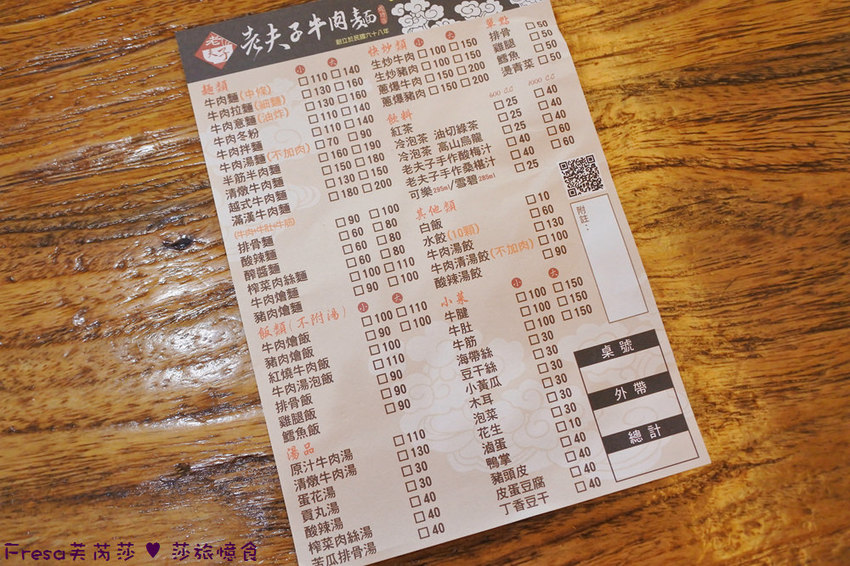 老夫子
老夫子牛肉麵
創立於民國六十八年
麵類 小 大
牛肉麵(中辣) □110 □140
牛肉拉麵(細麵) □130 □160
牛肉意麵(油炸) □130 □160
牛肉冬粉 □110 □140
牛肉拌麵 □110 □140
牛肉湯麵(不加肉) □70 □90
半筋半肉麵 □160 □190
清燉牛肉麵 □150 □180
越式牛肉麵 □130 □150
滿漢牛肉麵 □180 □200
(牛肉牛肚牛筋)
排骨麵 □90 □100
酸辣麵 □60 □80
醡醬麵 □60 □80
榨菜肉絲麵 □60 □80
牛肉燴麵 □100 □110
豬肉燴麵 □90 □100
飯類(不附湯) 小 大
牛肉燴飯 □100 □110
豬肉燴飯 □90 □100
紅燒牛肉飯 □100
牛肉湯泡飯 □110
排骨飯 □90
雞腿飯 □90
鱈魚飯 □90
湯品
原汁牛肉湯 □110
清燉牛肉湯 □130
蛋花湯 □30
貢丸湯 □30
酸辣湯 □40
榨菜肉絲湯 □40
苦瓜排骨湯 □40
快炒類 小 大
生炒牛肉 □100 □150
生炒豬肉 □100 □150
蔥爆牛肉 □150 □200
蔥爆豬肉 □150 □200
單點
排骨 □50
雞腿 □50
鱈魚 □50
燙青菜 □50
飲料 500 C.C 1000 C.C
紅茶 □25 □40
冷泡茶 油切綠茶 □25 □40
冷泡茶 高山烏龍 □25 □40
老夫子手作酸梅汁 □40 □60
老夫子手作桑椹汁 □40 □60
可樂285ml/雪碧285ml □25
其他類
白飯 □10
水餃(10顆) □60
牛肉湯餃 □130
牛肉清湯餃(不加肉) □100
酸辣湯餃 □90
小菜 小 大
牛腱 □100 □150
牛肚 □100 □150
牛筋 □100 □150
海帶絲 □30
豆干絲 □30
小黃瓜 □30
木耳 □30
泡菜 □30
花生 □30
滷蛋 □10
鴨掌 □40
豬頭皮 □40
皮蛋豆腐 □40
丁香豆干 □40
附註：
桌號
外帶
總計
Fresa芙芮莎 ♥ 莎旅憶食